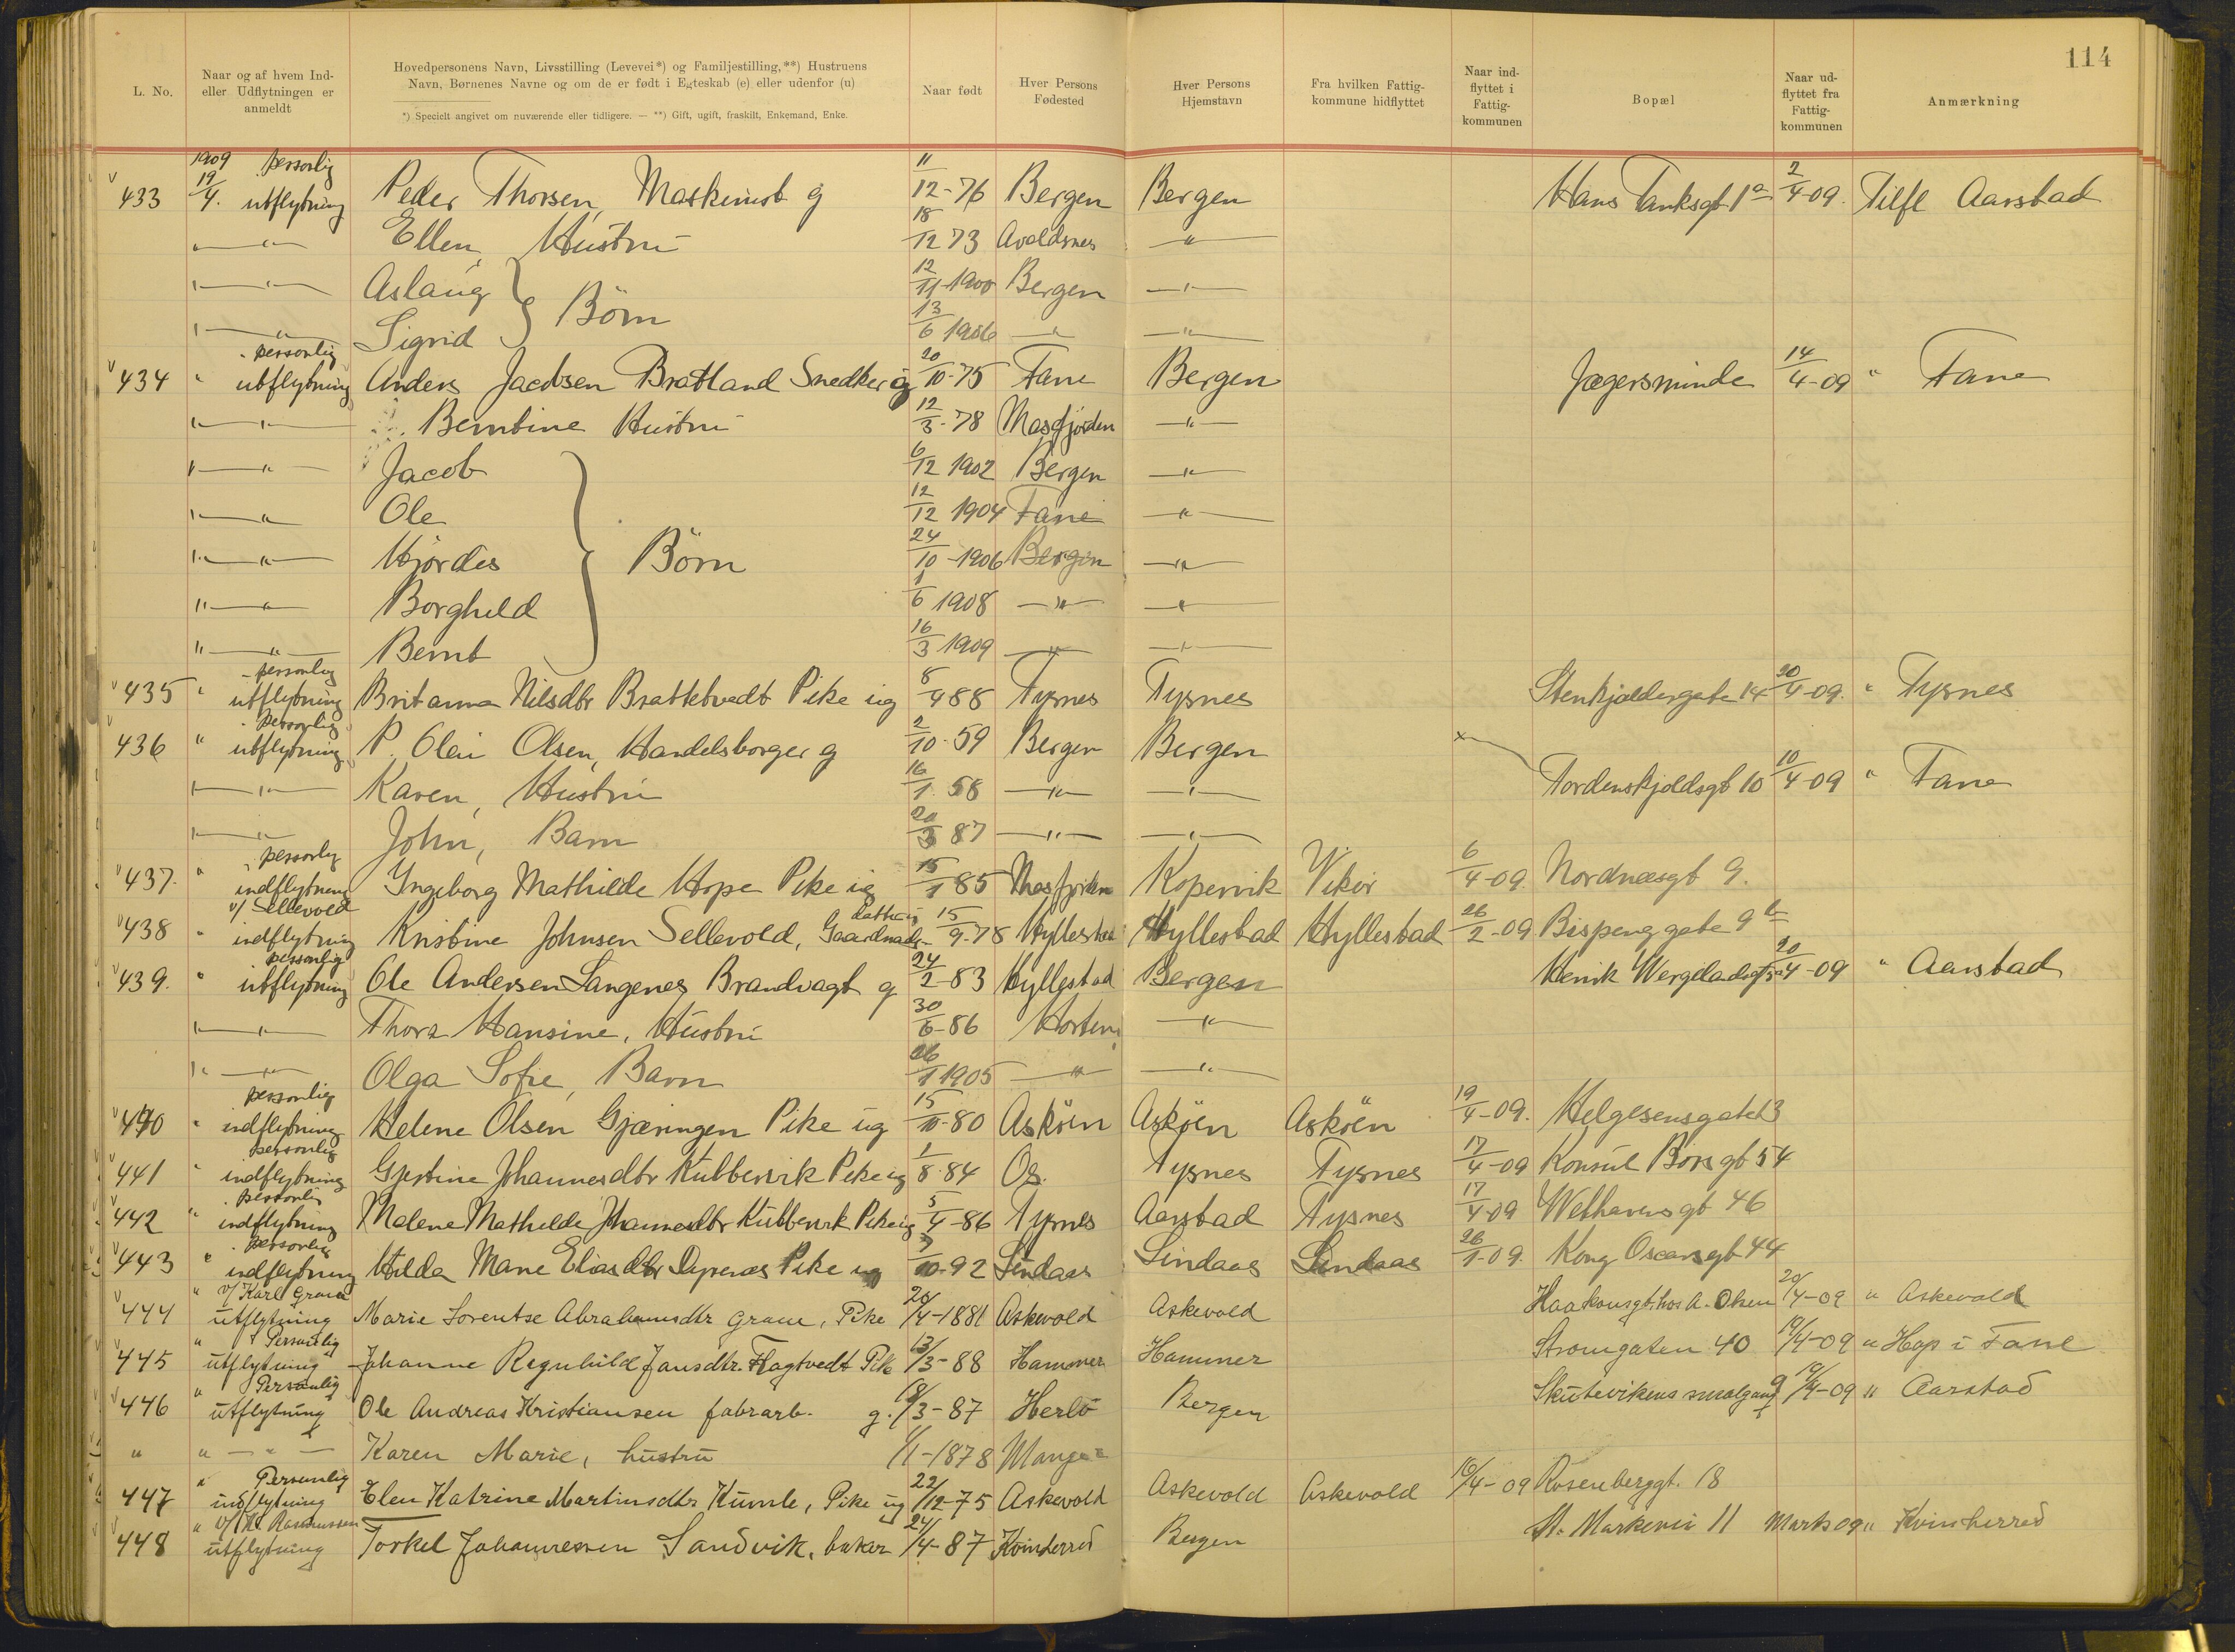 114
L. No.
Naar og af hvem Ind- eller Udflytningen er anmeldt
Hovedpersonens Navn, Livsstilling (Levevei*) og Familjestilling,**) Hustruens Navn, Børnenes Navne og om de er født i Egteskab (e) eller udenfor (u)
*) Specielt angivet om nuværende eller tidligere. — **) Gift, ugift, fraskilt, Enkemand, Enke.
Naar født
Hver Persons Fødested
Hver Persons Hjemstavn
Fra hvilken Fattig-kommune hidflyttet
Naar ind-flyttet i Fattig-kommunen
Bopæl
Naar ud-flyttet fra Fattig-kommunen
Anmærkning
433 1909 19/4. personlig utflytning Peder Thorsen, Maskinist g 11/12-76 Bergen Bergen Hans Tanksgt 1a 2/4-09. Tilfl Aarstad
" Ellen, Hustru 18/12 73 Avaldsnes "
" Aslaug } Børn 12/11-1900 Bergen "
" Sigrid 13/6 1906 " "
434 " personlig utflytning Anders Jacobsen Bratland Snedker g 20/10-75 Fane Bergen Jægersminde 14/4-09 " Fane
" Berntine Hustru 12/3-78 Masfjorden "
" Jacob } Børn 6/12 1902 Bergen "
" Ole 12/12 1904 Fane "
" Hjørdis 24/10-1906 Bergen "
" Borghild 1/6 1908 " "
" Bernt 16/3 1909 " "
435 " personlig utflytning Britanna Nilsdtr Brattetvedt Pike ug 8/4 88 Tysnes Tysnes Stenkjældergate 14 20/4-09. " Tysnes
436 " personlig utflytning P. Olai Olsen, Handelsborger g 2/10-59 Bergen Bergen Tordenskjoldsgt 10 10/4-09 " Fane
" Karen, Hustru 16/1. 58 " "
" John, Barn 20/3 87 " "
437. " personlig indflytning Ingeborg Mathilde Hope Pike ug 15/1 85 Masfjorden Kopervik Vikør 6/4-09 Nordnæsgt 9.
438 " v/ Sellevold indflytning Kristine Johnsen Sellevold, Gaardmads- datter 15/9-78 Hyllestad Hyllestad Hyllestad 26/2-09 Bispenggate 9b
439. " personlig utflytning Ole Andersen Langenes Brandvagt g 24/2-83 Hyllestad Bergen Henrik Wergelandsgt 20/4-09 " Aarstad
" Thora Hansine, Hustru 30/6-86 Horten "
" Olga Sofie, Barn 26/1 1905 " "
440 " personlig indflytning Helene Olsen Gjæringen Pike ug 15/10-80 Askøen Askøen Askøen 19/4-09. Helgesensgate 13
441 " personlig indflytning Gjertine Johannesdtr Kubbervik Pike ug 1/8-84 Os. Tysnes Tysnes 17/4-09 Konsul Børs gt 54
442 " personlig indflytning Malene Mathilde Johannesdtr Kubbervik Pike ug 5/4-86 Tysnes Aarstad Tysnes 17/4-09 Welhavensgt 46
443 " personlig indflytning Hilda Marie Eliasdtr Dypenes Pike ug 7/10-92 Lindaas Lindaas Lindaas 26/1-09. Kong Oscarsgt 44
444 " v/ Karl Grane utflytning Marie Lorentse Abrahamsdtr Grane, Pike 20/4-1881 Askevold Askevold Haakonsgt hos A. Olsen 20/4-09 " Askevold
445 " Personlig utflytning Johanne Regnhild Jansdtr. Flagtvedt Pike 13/3-88 Hammer Hammer Strømgaten 40 19/4-09 " Hop i Fane
446 " Personlig utflytning Ole Andreas Kristiansen fabrarb. g. 18/3-87 Herlø Bergen Skutevikens smalgang 9 19/4-09 " Aarstad
" " Karen Marie, hustru 1/1-1878 Manger
447 " Personlig indflytning Elen Katrine Martinsdtr Kumle, Pike ug 22/12-75 Askevold Askevold Askevold 16/4-09 Rosenberggt. 18
448 " v/ Rasmussen utflytning Torkel Johannessen Sandvik, baker 24/4-87 Kvinherred Bergen St. Markevei 11 Marts 09 " Kvinherred